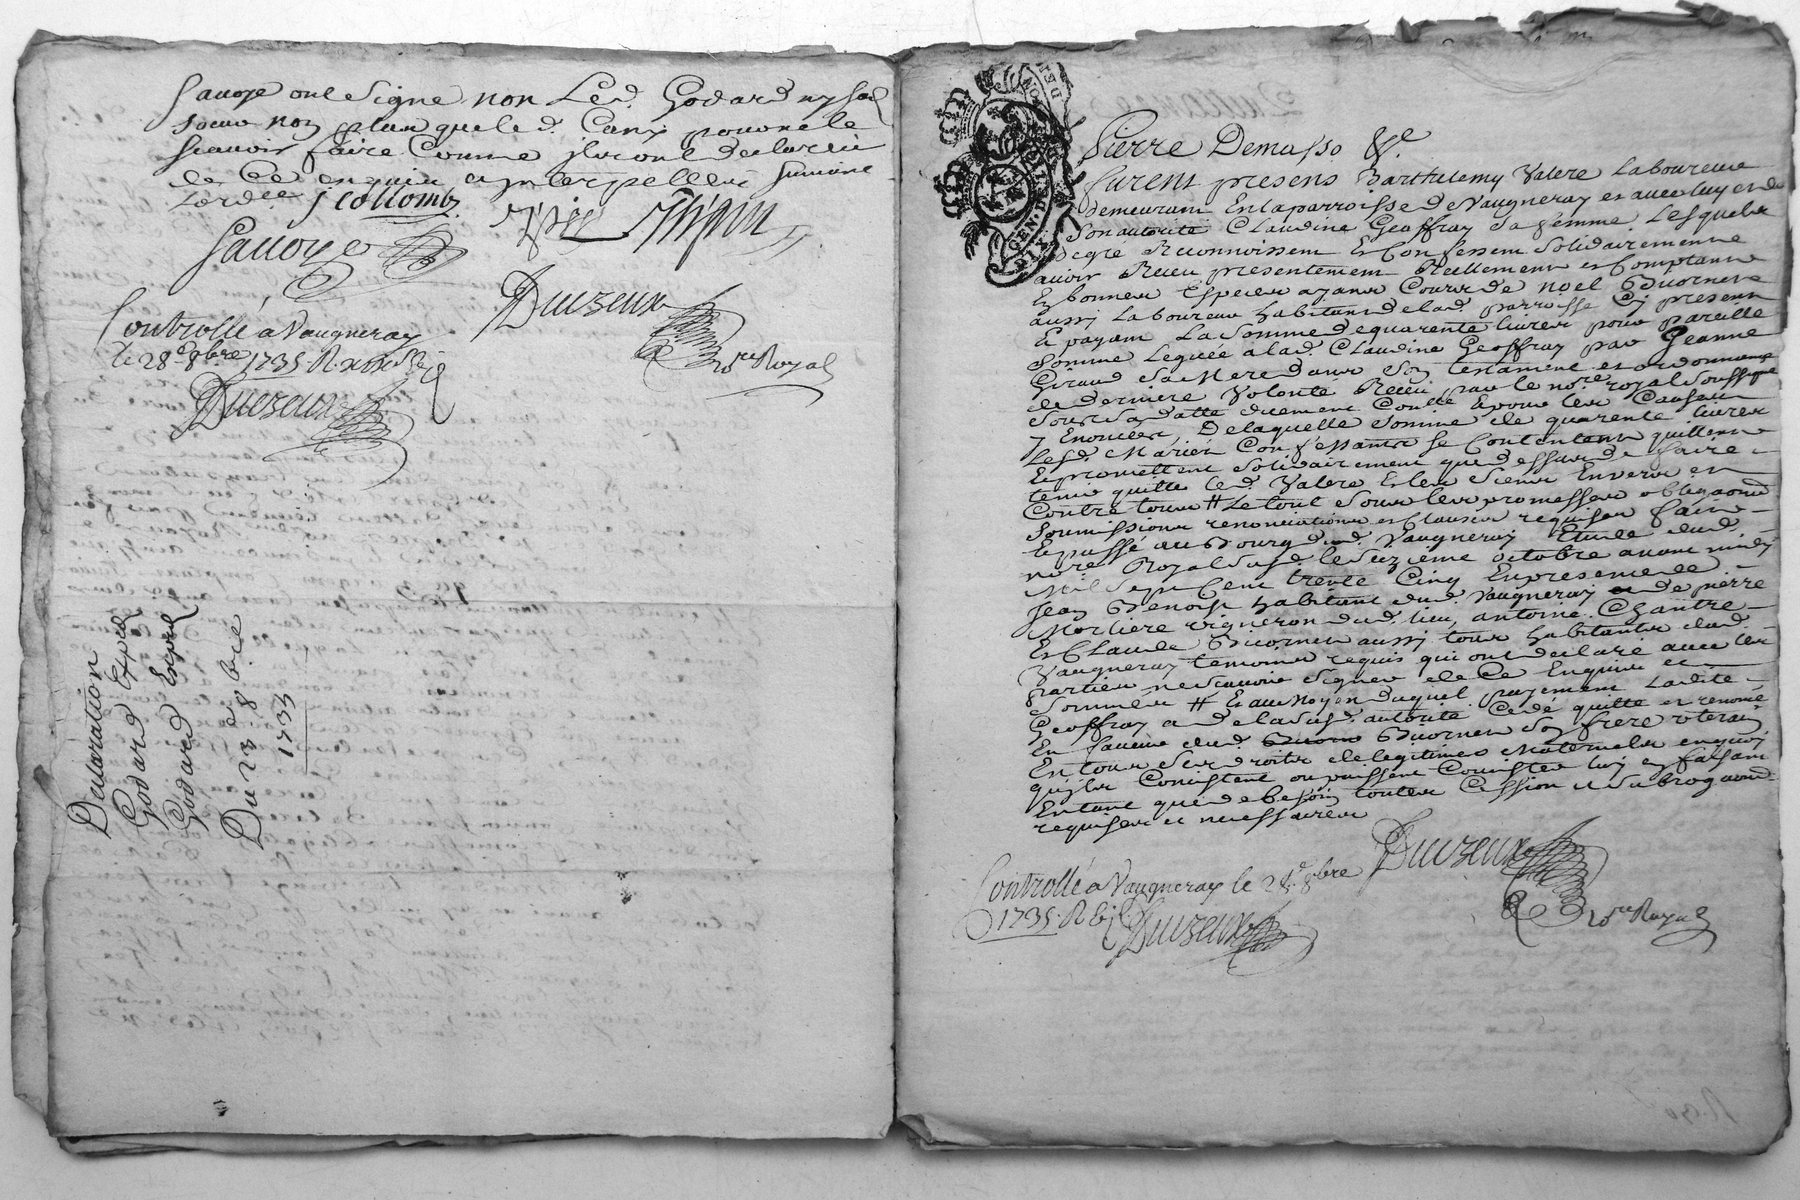 Sauoye ont Signe non Led. Godard ny sad
soeur non plus que led. Cany pour ne le
Scauoir faire Comme ils ont declarée
de Ce enquis et Interpellés suivant
Lordce J Collomb
Sauoye
Duczeux
nore Royal
Controllé a Vaugneray
le 28e 8bre 1735. R.
Duczeux
Declaration
Godard Expéd
Godard Expéd
Du 23e 8bre
1735
Pierre Demasso &c.
furent presens Barthelemy Valere Laboureur
demeurant En la parroisse de Vaugneray et avec luy et de
Son autorité Claudine Geoffray sa femme Lesquels
degré Reconnoissent Et Confessent Solidairement
auoir Receu presentement Reellement et Comptant
En bonnes Especes ayant Cours de noel Buornet
aussi Laboureur habitant de lad. parroisse Cy present
Et payant La Somme de quarente liures pour pareille
Somme Leguée a lad. Claudine Geoffray par Jeanne
Giraud Sa Mere dans Son testament et ordonnance
de derniere Volonté Receu par le nore royal Soussigné
Sous Sa datte duement Conllé Epour les Causes
y Enoncées, De laquelle Somme de quarente liures
Lesd. Mariés Confessants Se Contentent quittent
Et promettent Solidairement que dessus de faire
tenir quitte led. Valere Et les Siens Enuers et
Contre tous # Le tout Sous les promesses obligaons
Soumissions renonciations et Clauses requises fait
Et passé au Bourg dud. Vaugneray Etude dud.
nore Royal Susd. le seizieme octobre auant midy
Mil Sept Cent trente Cinq En presence de
Jean Benoist habitant dud. Vaugneray de pierre
Morliere vigneron dud. lieu, antoine Chantre
Et Claude Buornet aussi tous habitants dud.
Vaugneray temoins requis qui ont declaré auec les
parties ne Scauoir Signer de Ce Enquis et
Sommés # Et au Moyen duquel payement Ladite
Geoffray a de la Susd. autorité Cedé quitte et renoncé
En faueur dud. Buornet Son frere vterain
En tous Ses droits de legitimes Maternels en quoy
quils Consistent ou puissent Consister luy en faisant
En tant que de besoin toutes Cession et Subrogaon
requises et necessaires
Duczeux
nore Royal
Controllé a Vaugneray le 28e 8bre
1735. R
Duczeux